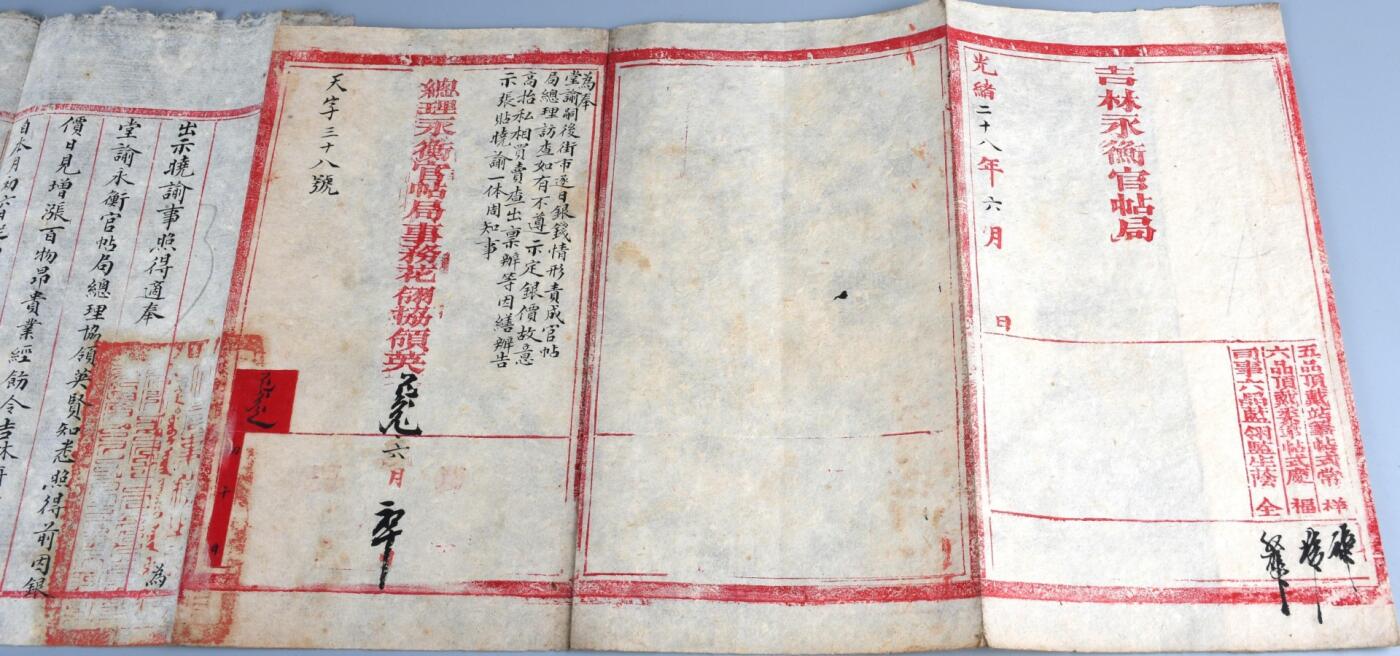 吉林永衡官帖局
五品頂戴站筆帖式常 祥
六品頂戴委筆帖式慶 福
司事六品藍翎 全
光緒二十八年六月 日
為奉
堂諭嗣後街市逐日銀錢情形責成官帖
局總理訪查如有不遵 示定銀價故意
高抬私相買賣查出稟辦等因繕辦告
示張貼曉諭一体周知事
總理永衡官帖局事務花翎協領英
六月
天字三十八號
十
日
為
出示曉諭事照得適奉
堂諭永衡官帖局總理協領英賢知悉照得前因銀
價日見增漲百物昂貴業經飭令吉林
自本月初六日